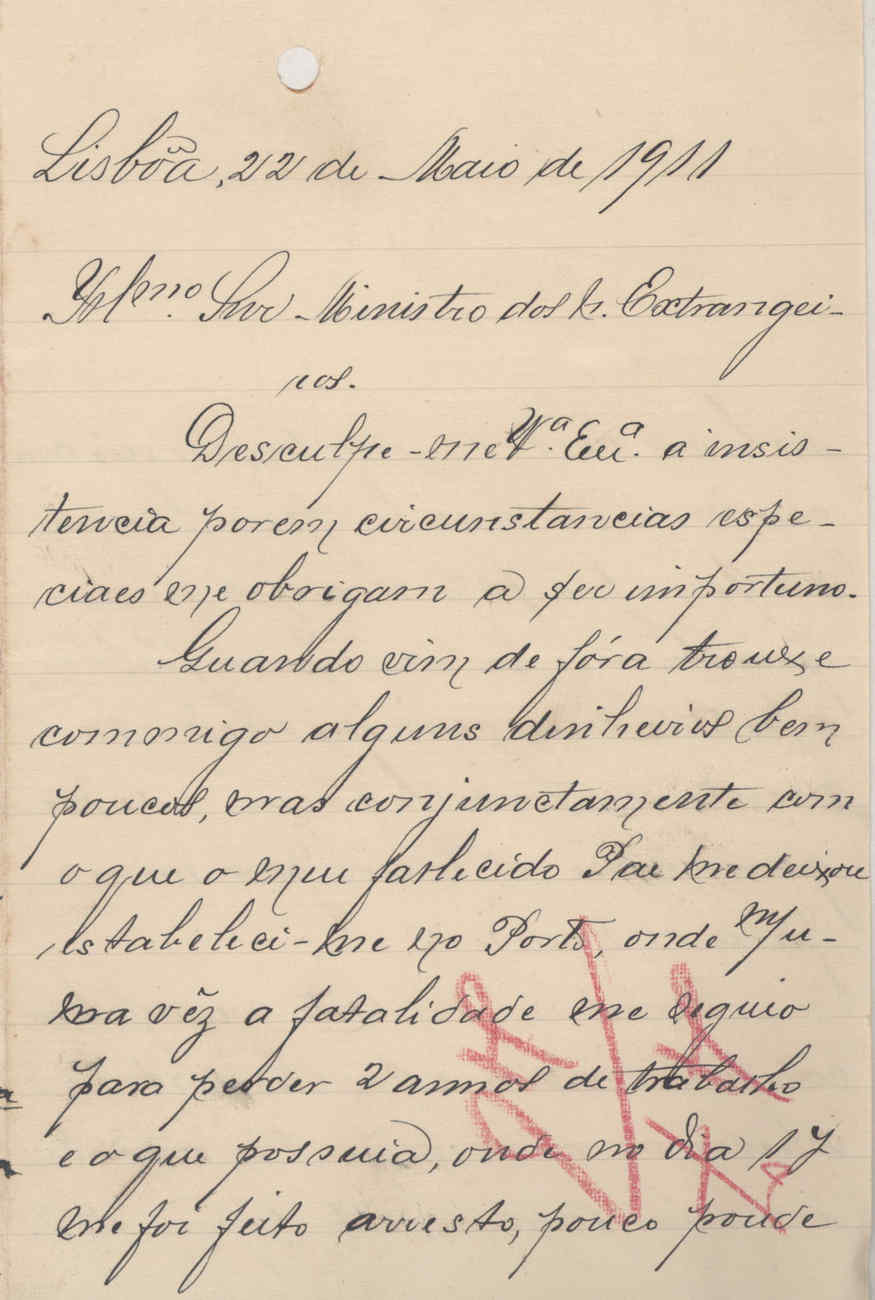 Lisbôa, 22 de Maio de 1911
Illmo. Snr Ministro dos N. Extrangei-
ros.
Desculpe-me Vª. Exª. a insis-
tencia porem circunstancias espe-
ciaes me obrigam a ser importuno.
Quando vim de fóra trouxe
commigo alguns dinheiros bem
poucos, mas conjunctamente com
o que o meu fallecido Pae me deixou
estabeleci-me no Porto, onde mu-
ma vêz a fatalidade me seguio
para perder 2 annos de trabalho
e o que possuia, onde no dia 17
me foi feito arresto, pouco poude